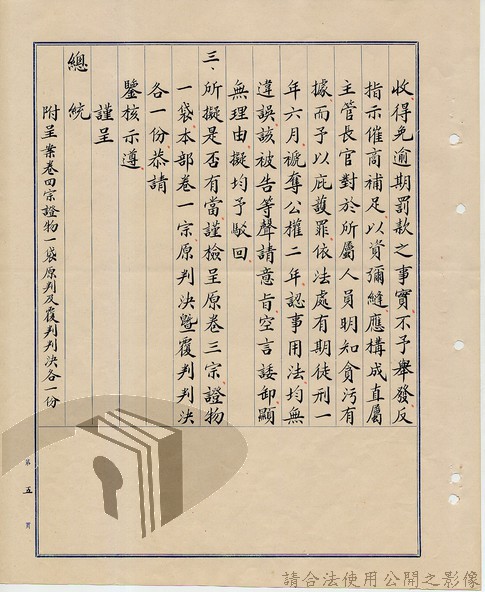 收得免逾期罰款之事實不予舉發反
指示催商補足以資彌縫應構成直屬
主管長官對於所屬人員明知貪污有
據而予以庇護罪依法處有期徒刑一
年六月褫奪公權二年認事用法均無
違誤該被告等聲請意旨空言諉卸顯
無理由擬均予駁回
三、所擬是否有當謹檢呈原卷三宗證物
一袋本部卷一宗原判決暨覆判判決
各一份恭請
鑒核示遵
謹呈
總統
附呈案卷四宗證物一袋原判及覆判判決各一份
第五頁
請合法使用公開之影像